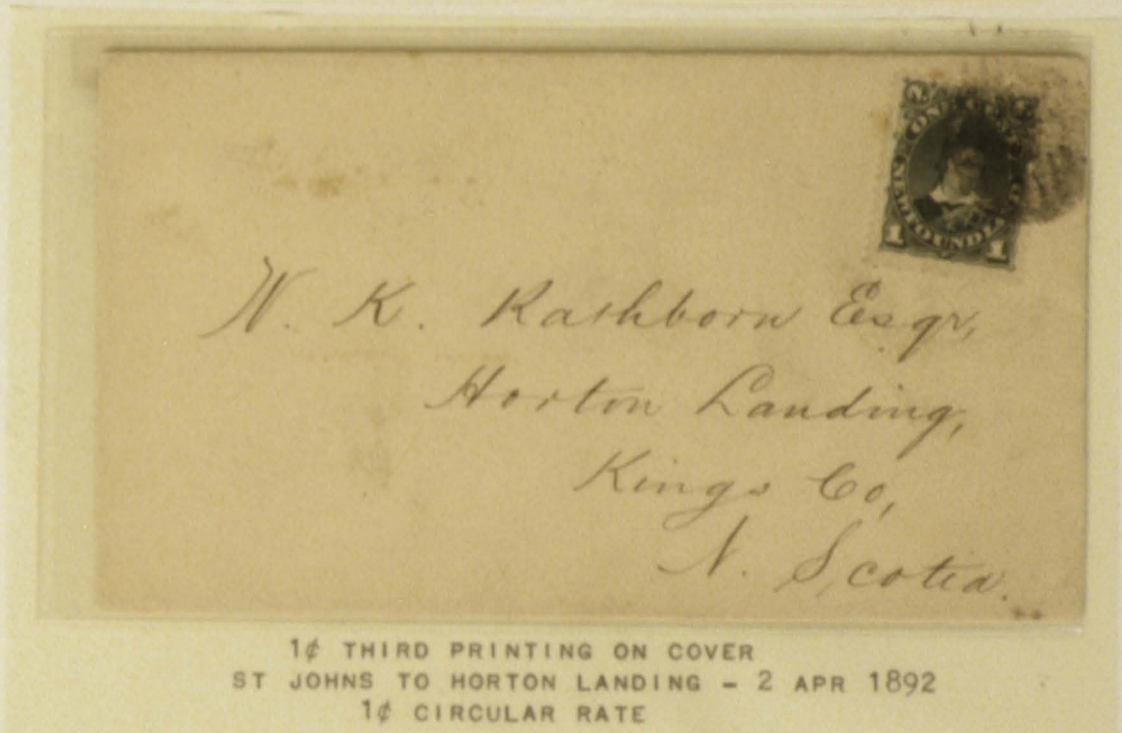 ONE CENT
NEWFOUNDLAND
1 1
W. K. Rathborn Esqr,
Horton Landing,
Kings Co,
N. Scotia.
1¢ THIRD PRINTING ON COVER
ST JOHNS TO HORTON LANDING – 2 APR 1892
1¢ CIRCULAR RATE